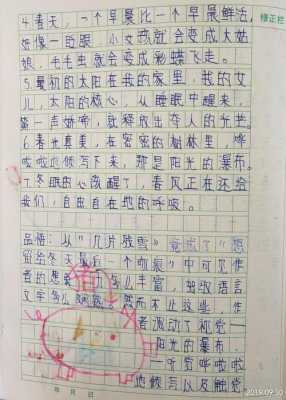 4.春天，一个早晨比一个早晨鲜活，
好像一眨眼，小女孩就会变成大姑
娘，毛毛虫就会变成彩蝶飞走。
5.最初的太阳在我的家里，我的女
儿，太阳的核心，从睡眠中醒来，
第一声娇啼，就释放出夺人的光芒。
6.春光真美，在密密的树林里，哗
啦啦地倾泻下来，那是阳光的瀑布。
7.冬眠的心微醒了，春风正在还给
我们，自由自在地的呼吸。
品悟：从“几片残雪”竟成了“
留给冬天最后一个吻痕”中可见作
者的想象 多么丰富，
文字多么 然而不止这些，作
者激动了视觉一
阳光的瀑布，
一听觉哗啦啦
地倾泻以及触觉
修正栏
年 月 日
2019.09.30